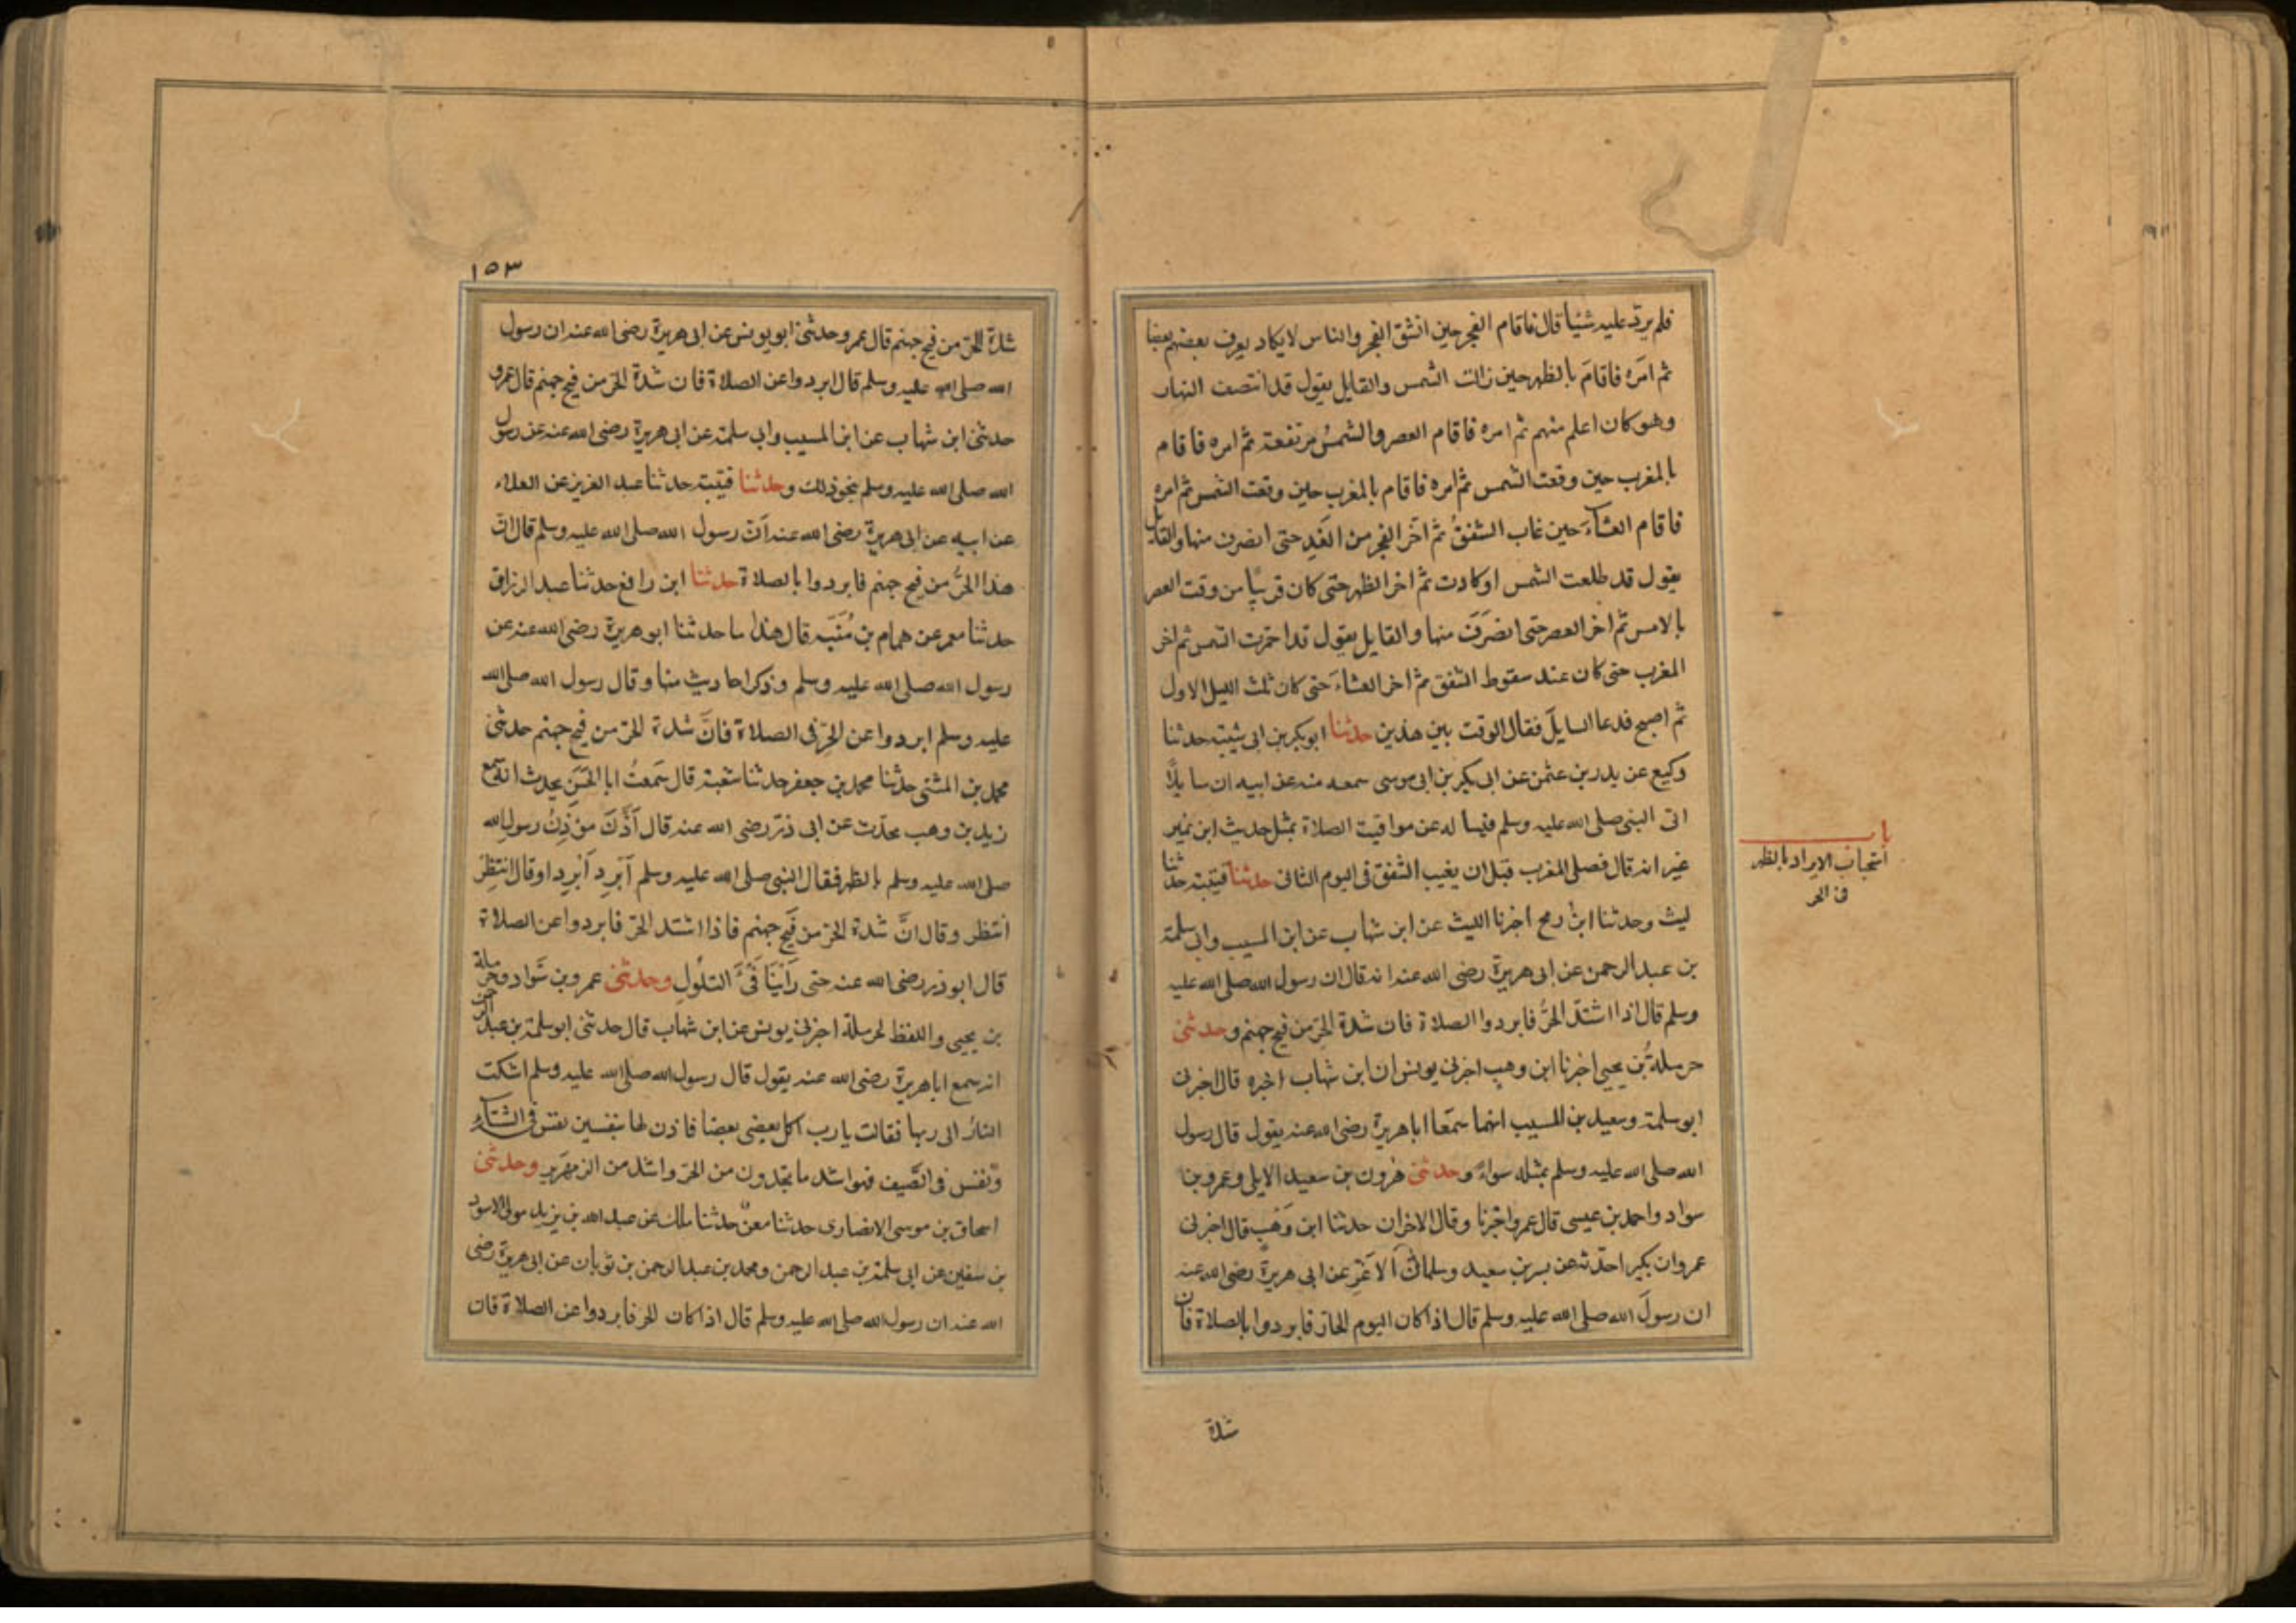 فلم يرد عليه شئيا قال فاقام الفجر حين انشق الفجر والناس لا يكاد يعرف بعضهم بعضا
ثم امره فاقام بالظهر حين زالت الشمس والقايل يقول قد انتصف النهار
وهو كان اعلم منهم ثم امره فاقام العصر والشمس مرتفعة ثم امره فاقام
بالمغرب حين وقعت الشمس ثم امره فاقام بالمغرب حين وقعت الشمس ثم امره
فاقام العشاء حين غاب الشفق ثم اخر الفجر من الغد حتى انصرف منها والقايل
يقول قد طلعت الشمس او كادت ثم اخر الظهر حتى كان قريبا من وقت العصر
بالامس ثم اخر العصر حتى انصرف منها والقايل يقول قد احمرت الشمس ثم اخر
المغرب حتى كان عند سقوط الشفق ثم اخر العشاء حتى كان ثلث الليل الاول
ثم اصبح فدعا السايل فقال الوقت بين هذين حدثنا ابو بكر بن ابي شيبة حدثنا
وكيع عن بدر بن عثمن عن ابي بكر بن ابي موسى سمعه منه عن ابيه ان سايلا
اتى النبي صلى الله عليه وسلم فيسا له عن مواقيت الصلاة بمثل حديث ابن نمير
غير انه قال فصلى المغرب قبل ان يغيب الشفق في اليوم الثاني حدثنا قتيبة حدثنا
ليث وحدثنا ابن رمح اخبرنا الليث عن ابن شهاب عن ابن المسيب وابي سلمة
بن عبد الرحمن عن ابي هريرة رضي الله عنه انه قال ان رسول الله صلى الله عليه
وسلم قال اذا اشتد الحر فابردوا الصلاة فان شدة الحر من فيح جهنم وحدثني
حرملة بن يحيى اخبرنا ابن وهب اخبرني يونس ان ابن شهاب اخبره قال اخبرني
ابو سلمة وسعيد بن المسيب انهما سمعا ابا هريرة رضي الله عنه يقول قال رسول
الله صلى الله عليه وسلم بمثله سواء وحدثني هرون بن سعيد الايلي وعمرو بن
سواد واحمد بن عيسى قال عمرو اخبرنا وقال الاخران حدثنا ابن وهب قال اخبرني
عمرو ان بكيرا حدثه عن بسر بن سعيد وسلمان الاغر عن ابي هريرة رضي الله عنه
ان رسول الله صلى الله عليه وسلم قال اذا كان اليوم الحار فابردوا بالصلاة فان
باب
استحباب الابراد بالظهر
في الحر
شدة
١٥٣
شدة الحر من فيح جهنم قال عمرو حدثني ابو يونس عن ابي هريرة رضي الله عنه ان رسول
الله صلى الله عليه وسلم قال ابردوا عن الصلاة فان شدة الحر من فيح جهنم قال عمرو
حدثني ابن شهاب عن ابن المسيب وابي سلمة عن ابي هريرة رضي الله عنه عن رسول
الله صلى الله عليه وسلم بنحو ذلك وحدثنا قتيبة حدثنا عبد العزيز عن العلاء
عن ابيه عن ابي هريرة رضي الله عنه ان رسول الله صلى الله عليه وسلم قال ان
هذا الحر من فيح جهنم فابردوا بالصلاة حدثنا ابن رافع حدثنا عبد الرزاق
حدثنا معمر عن همام بن منبه قال هذا ما حدثنا ابو هريرة رضي الله عنه عن
رسول الله صلى الله عليه وسلم وذكر احاديث منها وقال رسول الله صلى الله
عليه وسلم ابردوا عن الحر في الصلاة فان شدة الحر من فيح جهنم حدثني
محمد بن المثنى حدثنا محمد بن جعفر حدثنا شعبة قال سمعت ابا الحسن يحدث انه سمع
زيد بن وهب يحدث عن ابي ذر رضي الله عنه قال اذن مؤذن رسول الله
صلى الله عليه وسلم بالظهر فقال النبي صلى الله عليه وسلم ابرد ابرد او قال انتظر
انتظر وقال ان شدة الحر من فيح جهنم فاذا اشتد الحر فابردوا عن الصلاة
قال ابو ذر رضي الله عنه حتى راينا فيء التلول وحدثني عمرو بن سواد وحرملة
بن يحيى واللفظ لحرملة اخبرني يونس عن ابن شهاب قال حدثني ابو سلمة بن عبد الرحمن
انه سمع ابا هريرة رضي الله عنه يقول قال رسول الله صلى الله عليه وسلم اشتكت
النار الى ربها فقالت يا رب اكل بعضي بعضا فاذن لها بنفسين نفس في الشتاء
ونفس في الصيف فهو اشد ما تجدون من الحر واشد من الزمهرير وحدثني
اسحاق بن موسى الانصاري حدثنا معن حدثنا ملك عن عبد الله بن يزيد مولى الاسود
بن سفين عن ابي سلمة بن عبد الرحمن ومحمد بن عبد الرحمن بن ثوبان عن ابي هريرة رضي
الله عنه ان رسول الله صلى الله عليه وسلم قال اذا كان الحر فابردوا عن الصلاة فان